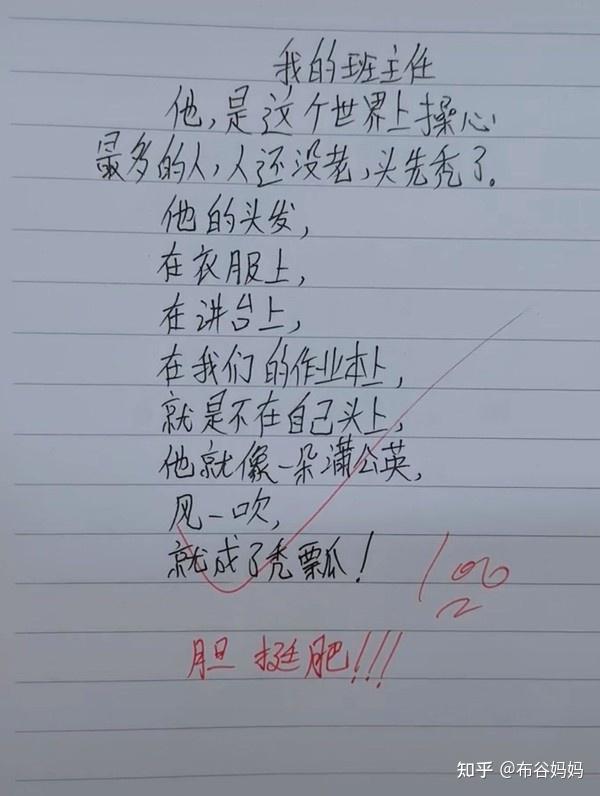 我的班主任
他,是这个世界上操心
最多的人,人还没老,头先秃了。
他的头发,
在衣服上,
在讲台上,
在我们的作业本上,
就是不在自己头上,
他就像一朵蒲公英,
风一吹,
就成了秃瓢瓜!
100
胆挺肥!!!
知乎 @布谷妈妈